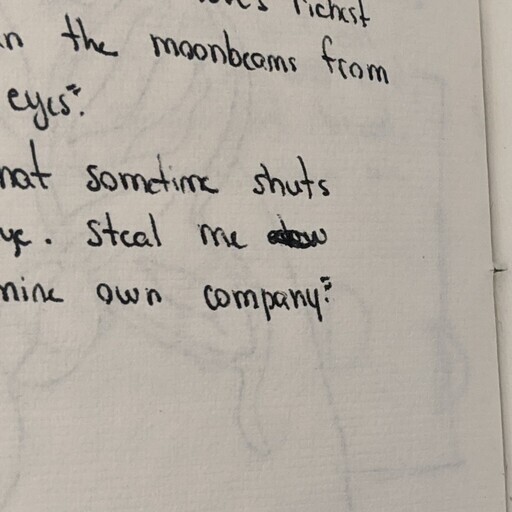 richest
n the moonbeams from
eyes".
hat sometime shuts
ye. Steal me
mine own company."